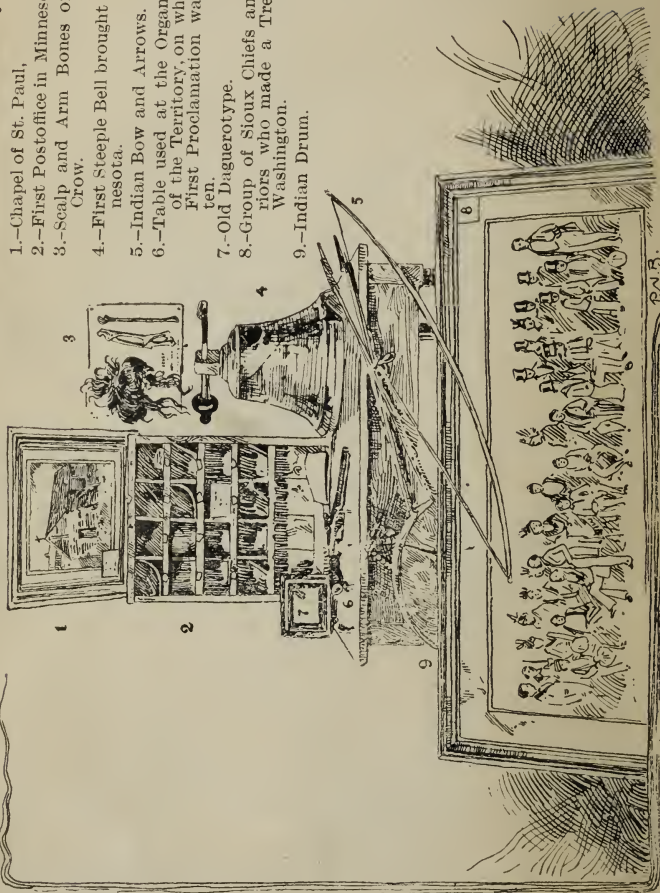 1.–Chapel of St. Paul,
2.–First Postoffice in Minnes
3.–Scalp and Arm Bones o
Crow.
4.–First Steeple Bell brought
nesota.
5.–Indian Bow and Arrows.
6.–Table used at the Organ
of the Territory, on wh
First Proclamation wa
ten.
7.–Old Daguerotype.
8.–Group of Sioux Chiefs an
riors who made a Tre
Washington.
9.–Indian Drum.
1
2
3
4
5
6
7
8
9
P.N.B.